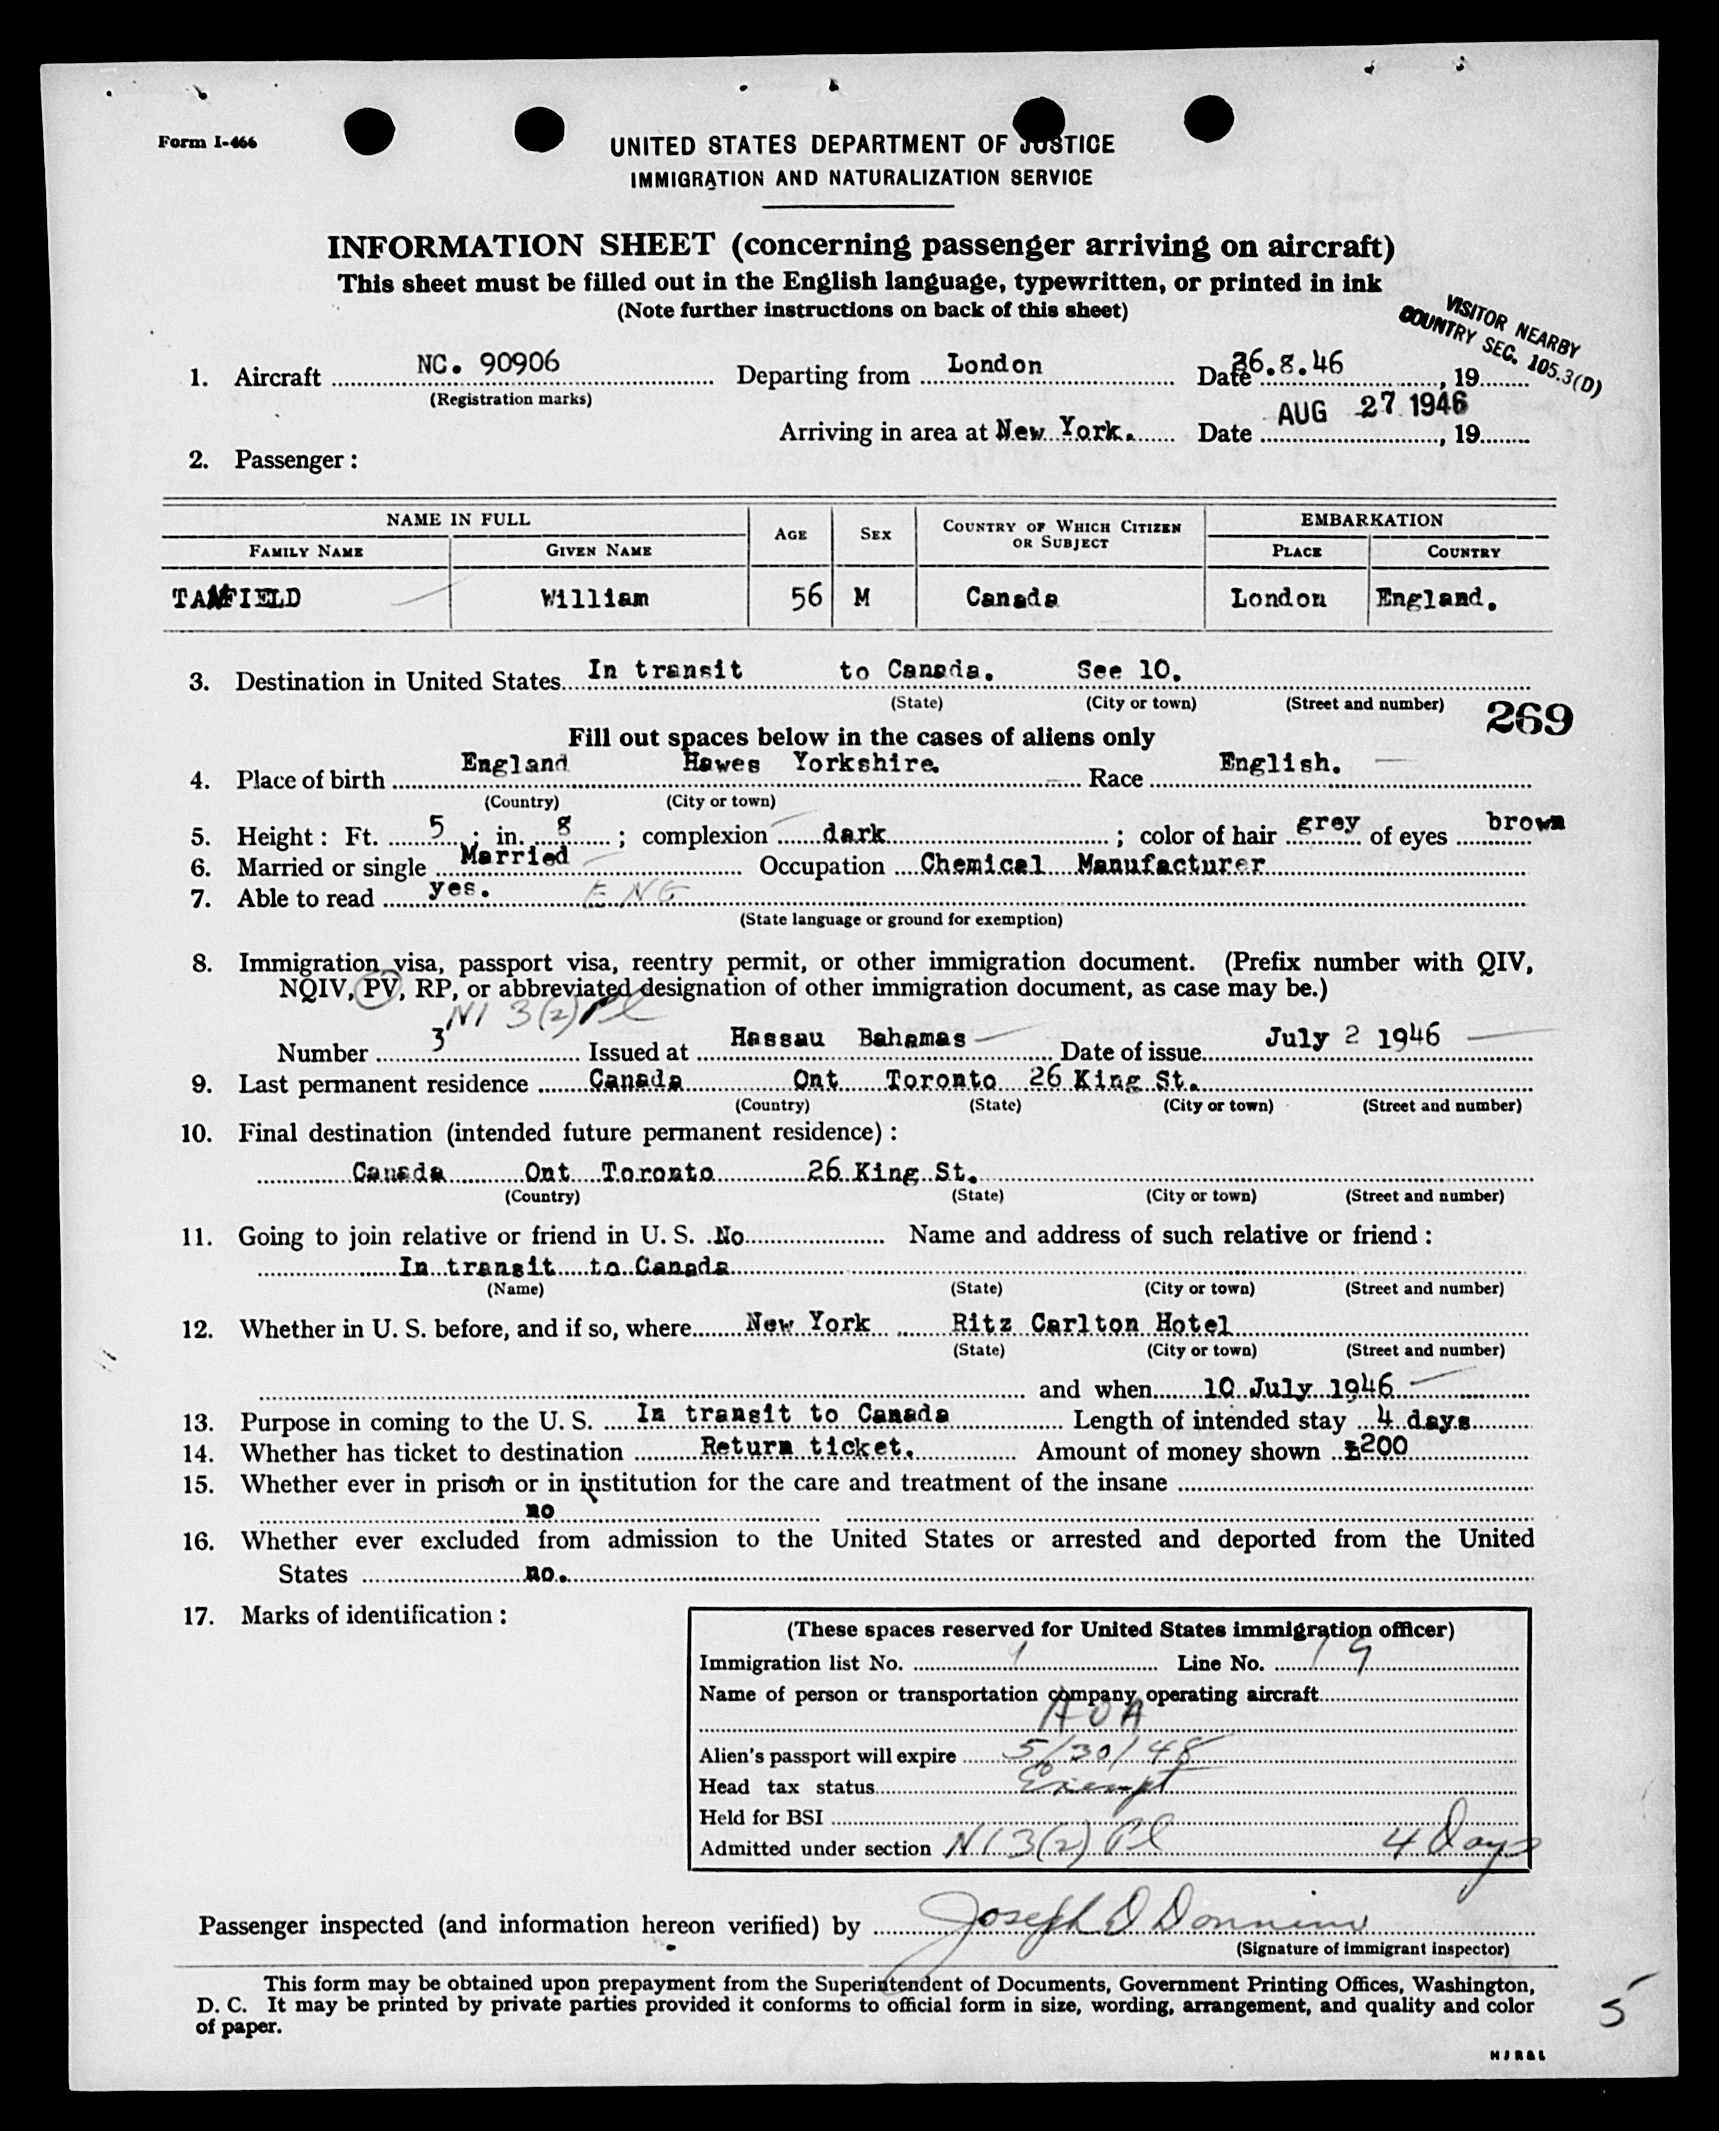 Form I-466
UNITED STATES DEPARTMENT OF JUSTICE
IMMIGRATION AND NATURALIZATION SERVICE
INFORMATION SHEET (concerning passenger arriving on aircraft)
This sheet must be filled out in the English language, typewritten, or printed in ink
(Note further instructions on back of this sheet)
VISITOR NEARBY
COUNTRY SEC. 105.3(D)
1. Aircraft NC. 90906 Departing from London Date 26.8.46, 19
(Registration marks)
Arriving in area at New York. Date AUG 27 1946, 19
2. Passenger:
NAME IN FULL AGE SEX COUNTRY OF WHICH CITIZEN OR SUBJECT EMBARKATION
FAMILY NAME GIVEN NAME PLACE COUNTRY
TANFIELD William 56 M Canada London England.
3. Destination in United States In transit to Canada. See 10.
(State) (City or town) (Street and number)
269
Fill out spaces below in the cases of aliens only
4. Place of birth England Hawes Yorkshire. Race English.
(Country) (City or town)
5. Height: Ft. 5; in. 8; complexion dark; color of hair grey of eyes brown
6. Married or single Married Occupation Chemical Manufacturer
7. Able to read yes. ENG
(State language or ground for exemption)
8. Immigration visa, passport visa, reentry permit, or other immigration document. (Prefix number with QIV,
NQIV, PV, RP, or abbreviated designation of other immigration document, as case may be.)
NI 3(2) Pl
Number 3 Issued at Hassau Bahamas Date of issue July 2 1946
9. Last permanent residence Canada Ont Toronto 26 King St.
(Country) (State) (City or town) (Street and number)
10. Final destination (intended future permanent residence):
Canada Ont Toronto 26 King St.
(Country) (State) (City or town) (Street and number)
11. Going to join relative or friend in U. S. No Name and address of such relative or friend:
In transit to Canada
(Name) (State) (City or town) (Street and number)
12. Whether in U. S. before, and if so, where New York Ritz Carlton Hotel
(State) (City or town) (Street and number)
and when 10 July 1946
13. Purpose in coming to the U. S. In transit to Canada Length of intended stay 4 days
14. Whether has ticket to destination Return ticket. Amount of money shown £200
15. Whether ever in prison or in institution for the care and treatment of the insane
no
16. Whether ever excluded from admission to the United States or arrested and deported from the United
States no.
17. Marks of identification:
(These spaces reserved for United States immigration officer)
Immigration list No. 1 Line No. 19
Name of person or transportation company operating aircraft
AOA
Alien's passport will expire 5/30/48
Head tax status Exempt
Held for BSI
Admitted under section NI 3(2) Pl 4 Days
Passenger inspected (and information hereon verified) by Joseph D
(Signature of immigrant inspector)
This form may be obtained upon prepayment from the Superintendent of Documents, Government Printing Offices, Washington,
D. C. It may be printed by private parties provided it conforms to official form in size, wording, arrangement, and quality and color
of paper.
5